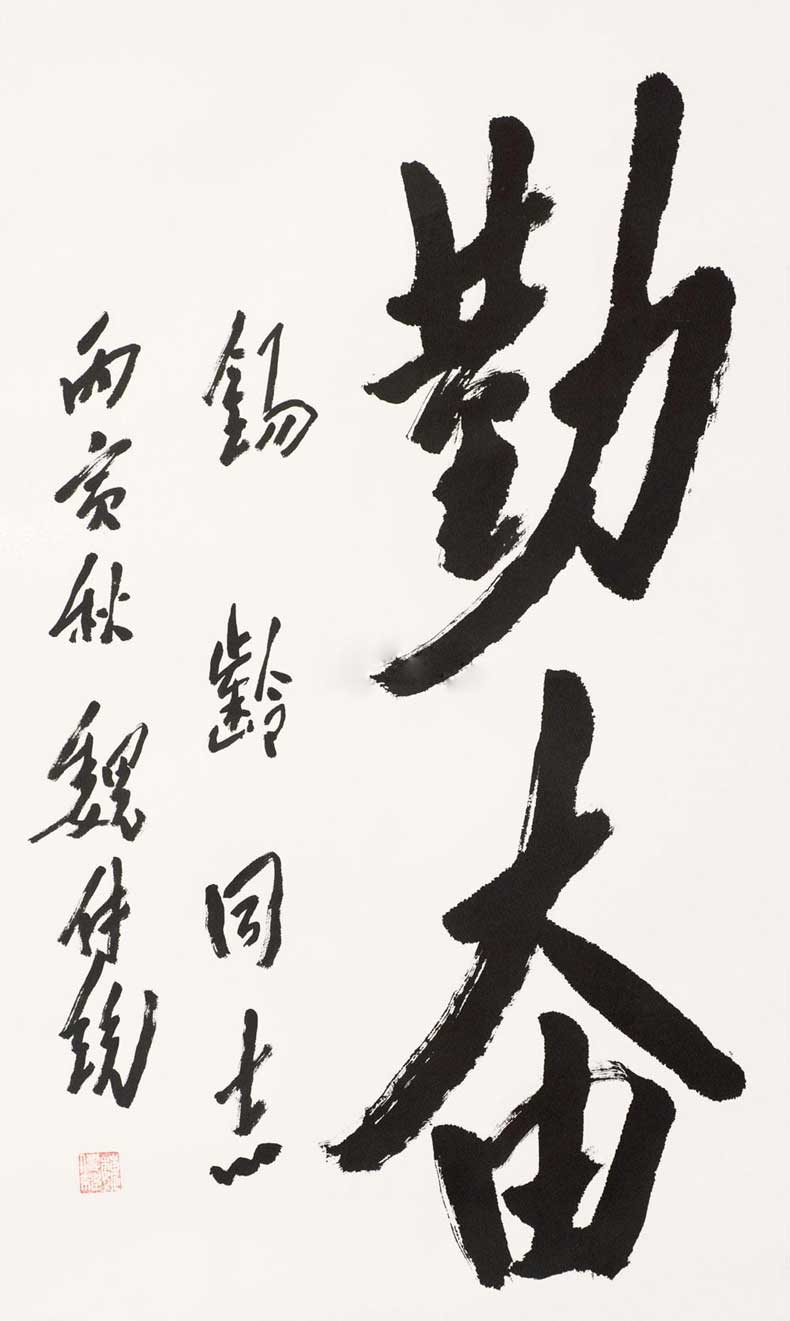 勤奋
錫齡同志
丙寅秋 魏传统